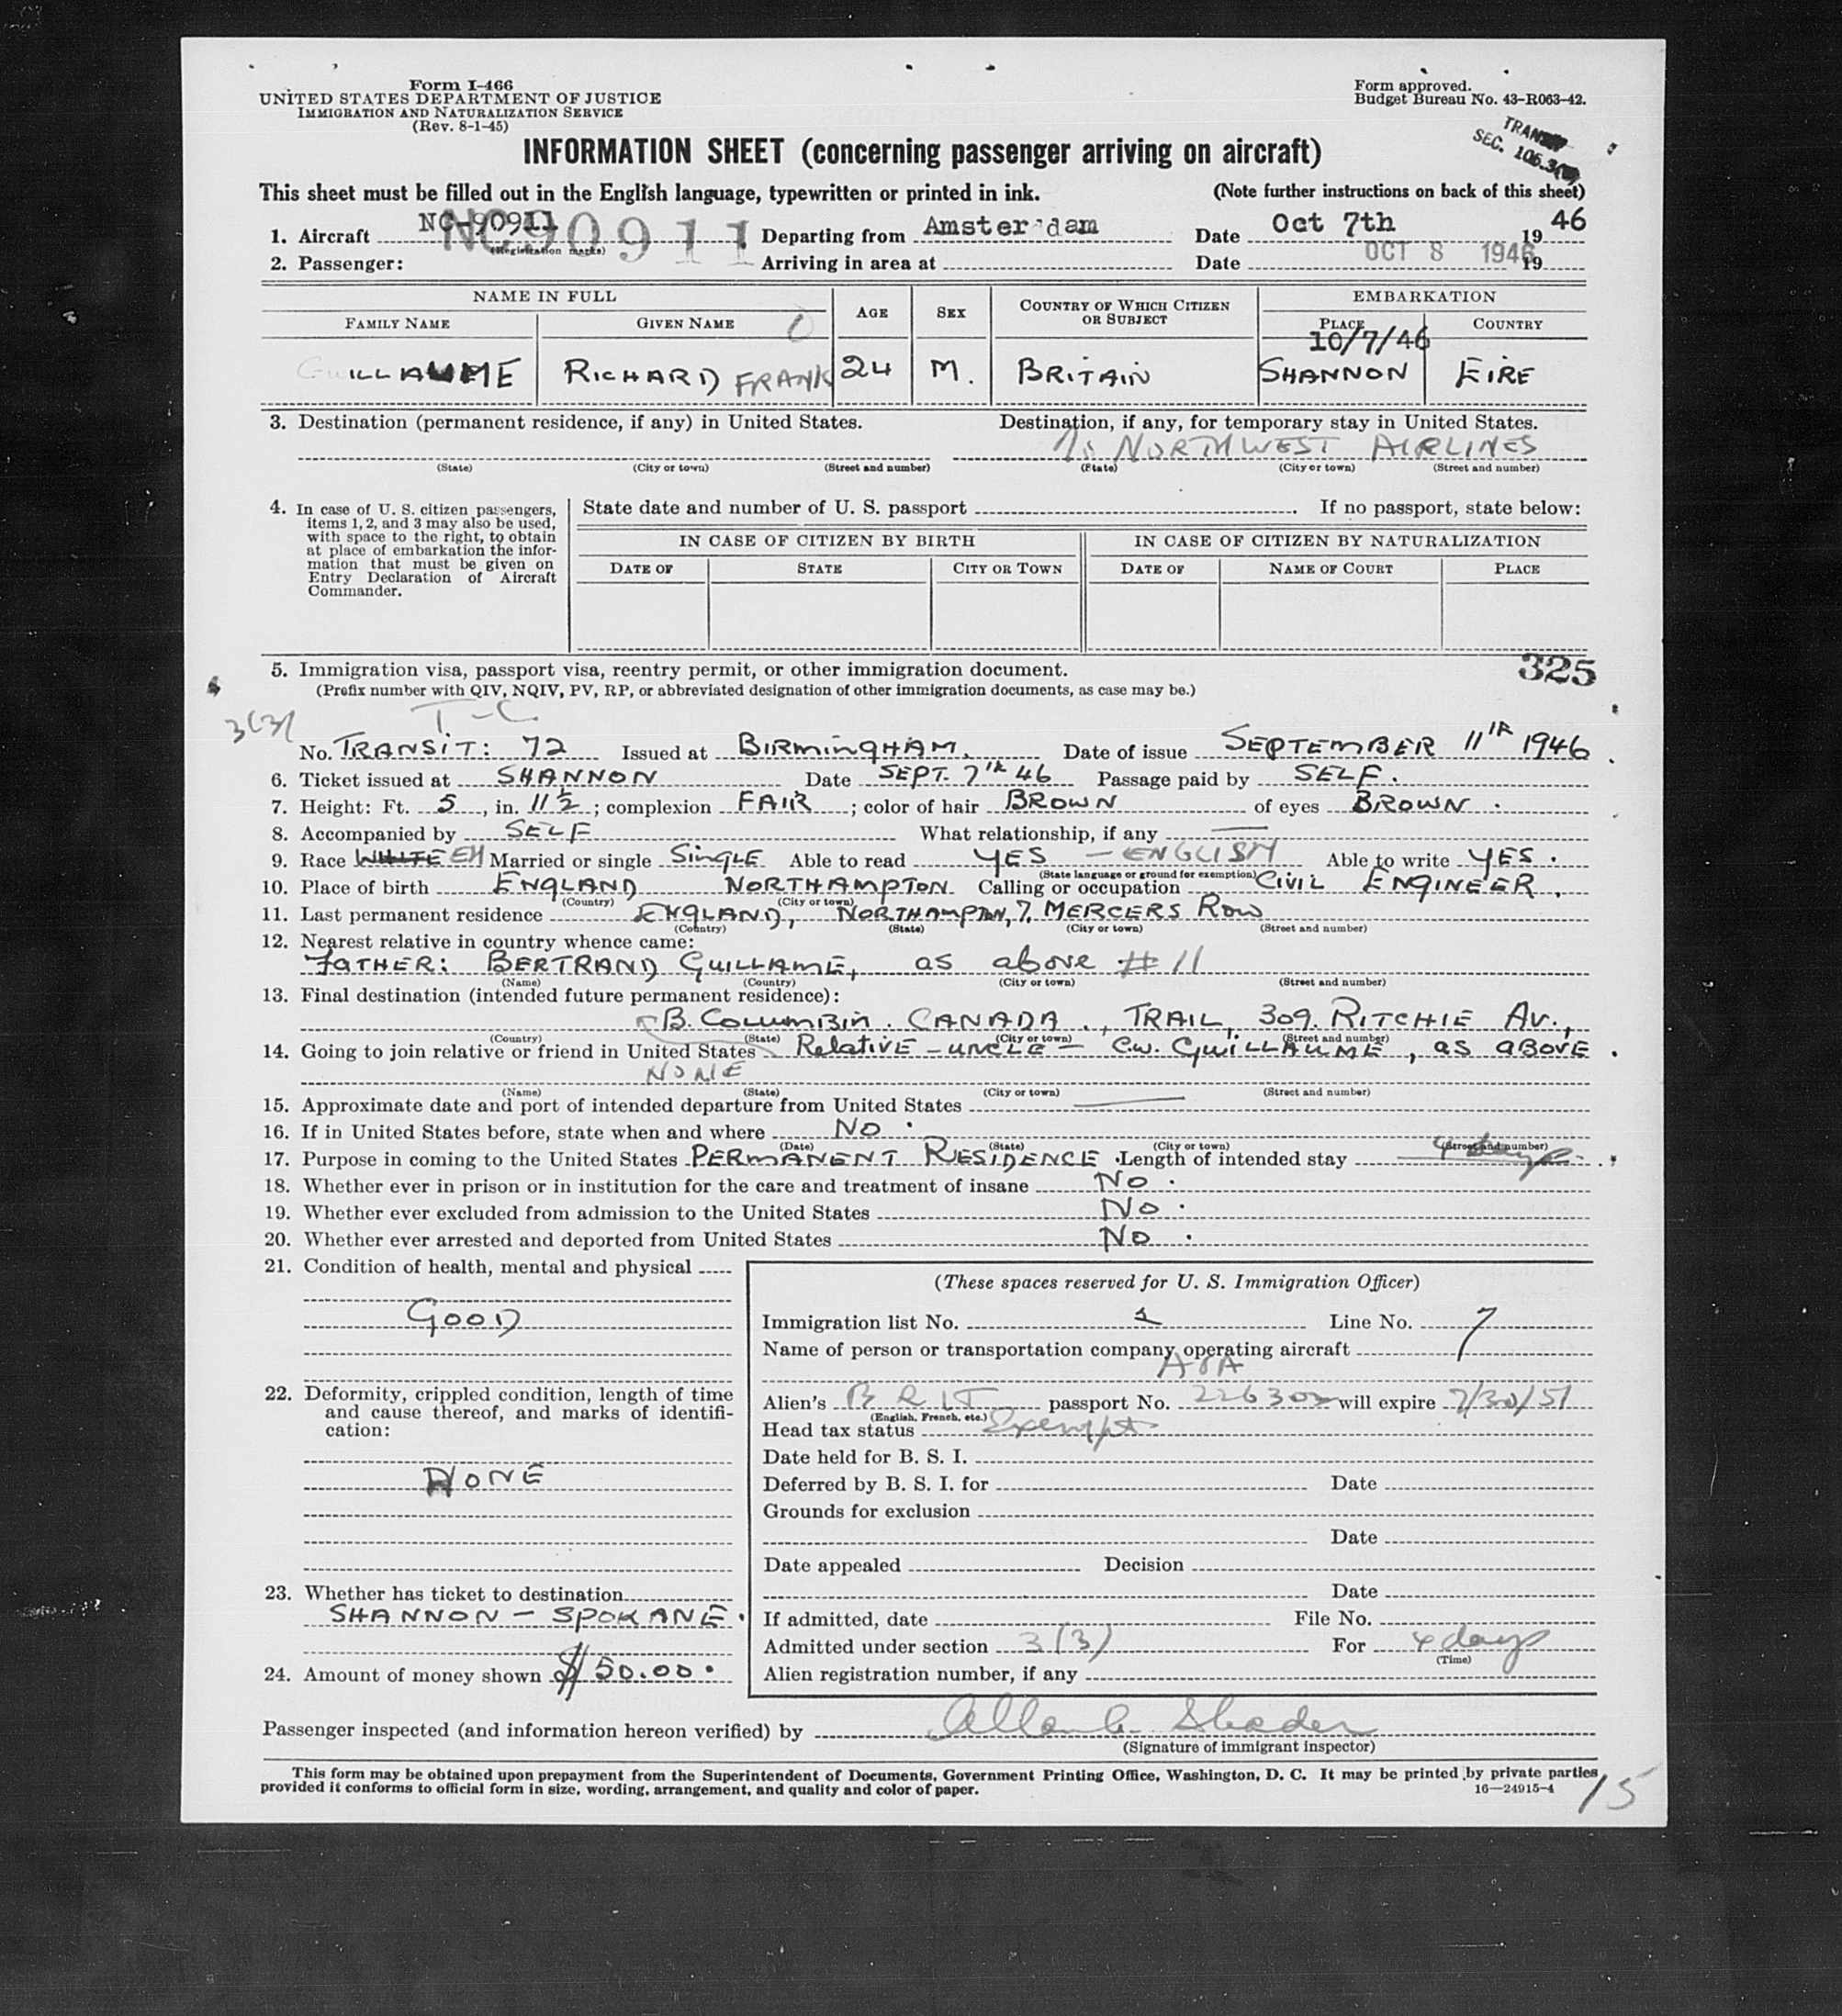 Form I-466
UNITED STATES DEPARTMENT OF JUSTICE
IMMIGRATION AND NATURALIZATION SERVICE
(Rev. 8-1-45)
Form approved.
Budget Bureau No. 43-R063-42.
TRANSIT
SEC. 106.3
INFORMATION SHEET (concerning passenger arriving on aircraft)
This sheet must be filled out in the English language, typewritten or printed in ink. (Note further instructions on back of this sheet)
1. Aircraft NC-90911 NC90911 (Registration marks) Departing from Amsterdam Date Oct 7th 1946
2. Passenger: Arriving in area at Date OCT 8 1946 19
NAME IN FULL AGE SEX COUNTRY OF WHICH CITIZEN OR SUBJECT EMBARKATION
FAMILY NAME GIVEN NAME PLACE COUNTRY
10/7/46
GUILLAUME RICHARD FRANK 24 M. BRITAIN SHANNON EIRE
3. Destination (permanent residence, if any) in United States. Destination, if any, for temporary stay in United States.
NORTHWEST AIRLINES
(State) (City or town) (Street and number) (State) (City or town) (Street and number)
4. In case of U. S. citizen passengers, items 1, 2, and 3 may also be used, with space to the right, to obtain at place of embarkation the information that must be given on Entry Declaration of Aircraft Commander.
State date and number of U. S. passport If no passport, state below:
IN CASE OF CITIZEN BY BIRTH IN CASE OF CITIZEN BY NATURALIZATION
DATE OF STATE CITY OR TOWN DATE OF NAME OF COURT PLACE
325
5. Immigration visa, passport visa, reentry permit, or other immigration document.
(Prefix number with QIV, NQIV, PV, RP, or abbreviated designation of other immigration documents, as case may be.)
3(3) T-C
No. TRANSIT: 72 Issued at BIRMINGHAM. Date of issue SEPTEMBER 11th 1946
6. Ticket issued at SHANNON Date SEPT. 7th 46 Passage paid by SELF.
7. Height: Ft. 5, in. 11½; complexion FAIR; color of hair BROWN of eyes BROWN.
8. Accompanied by SELF What relationship, if any —
9. Race WHITE EN Married or single SINGLE Able to read YES - ENGLISH Able to write YES.
(State language or ground for exemption)
10. Place of birth ENGLAND NORTHAMPTON Calling or occupation CIVIL ENGINEER.
(Country) (City or town)
11. Last permanent residence ENGLAND, NORTHAMPTON, 7, MERCERS ROW
(Country) (State) (City or town) (Street and number)
12. Nearest relative in country whence came:
FATHER: BERTRAND GUILLAME, as above #11
(Name) (Country) (City or town) (Street and number)
13. Final destination (intended future permanent residence):
B. COLUMBIA. CANADA., TRAIL, 309. RITCHIE AV.,
(Country) (State) (City or town) (Street and number)
14. Going to join relative or friend in United States RELATIVE - UNCLE - C.W. GUILLAUME, AS ABOVE.
NONE
(Name) (State) (City or town) (Street and number)
15. Approximate date and port of intended departure from United States —
16. If in United States before, state when and where NO.
(Date) (State) (City or town) (Street and number)
17. Purpose in coming to the United States PERMANENT RESIDENCE. Length of intended stay 4 days
18. Whether ever in prison or in institution for the care and treatment of insane NO.
19. Whether ever excluded from admission to the United States NO.
20. Whether ever arrested and deported from United States NO.
21. Condition of health, mental and physical
GOOD
22. Deformity, crippled condition, length of time and cause thereof, and marks of identification:
NONE
23. Whether has ticket to destination
SHANNON - SPOKANE.
24. Amount of money shown $50.00.
(These spaces reserved for U. S. Immigration Officer)
Immigration list No. 1 Line No. 7
Name of person or transportation company operating aircraft
AOA
Alien's BRIT passport No. 226303 will expire 7/30/51
(English, French, etc.)
Head tax status Exempt
Date held for B. S. I.
Deferred by B. S. I. for Date
Grounds for exclusion
Date
Date appealed Decision
Date
If admitted, date File No.
Admitted under section 3(3) For 4 days
(Time)
Alien registration number, if any
Passenger inspected (and information hereon verified) by
(Signature of immigrant inspector)
This form may be obtained upon prepayment from the Superintendent of Documents, Government Printing Office, Washington, D. C. It may be printed by private parties
provided it conforms to official form in size, wording, arrangement, and quality and color of paper. 16—24915-4
15